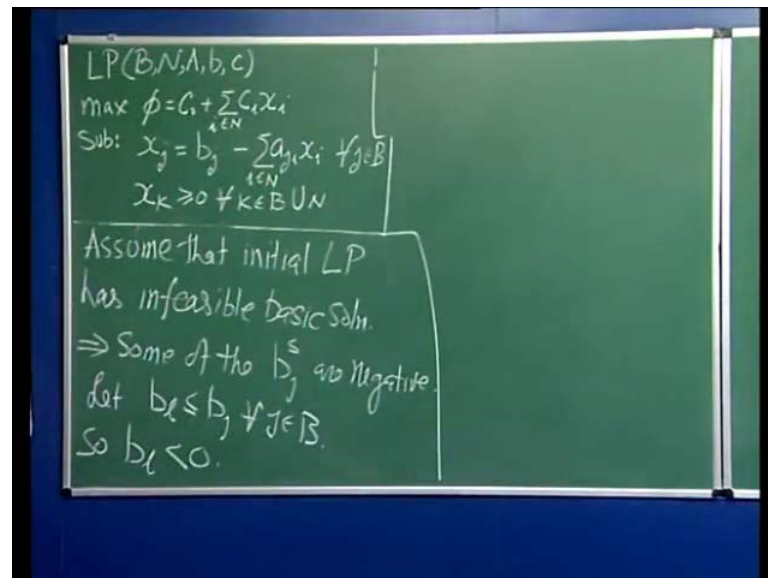 LP(B,N,A,b,c)
max φ = C₀ + ∑_{i∈N} C_i x_i
Sub: x_j = b_j - ∑_{i∈N} a_{ji} x_i ∀j∈B
x_K ≥ 0 ∀ K∈B∪N
Assume that initial LP
has infeasible basic soln.
⇒ Some of the b_j^s are negative.
Let b_l ≤ b_j ∀ j∈B.
So b_l < 0.